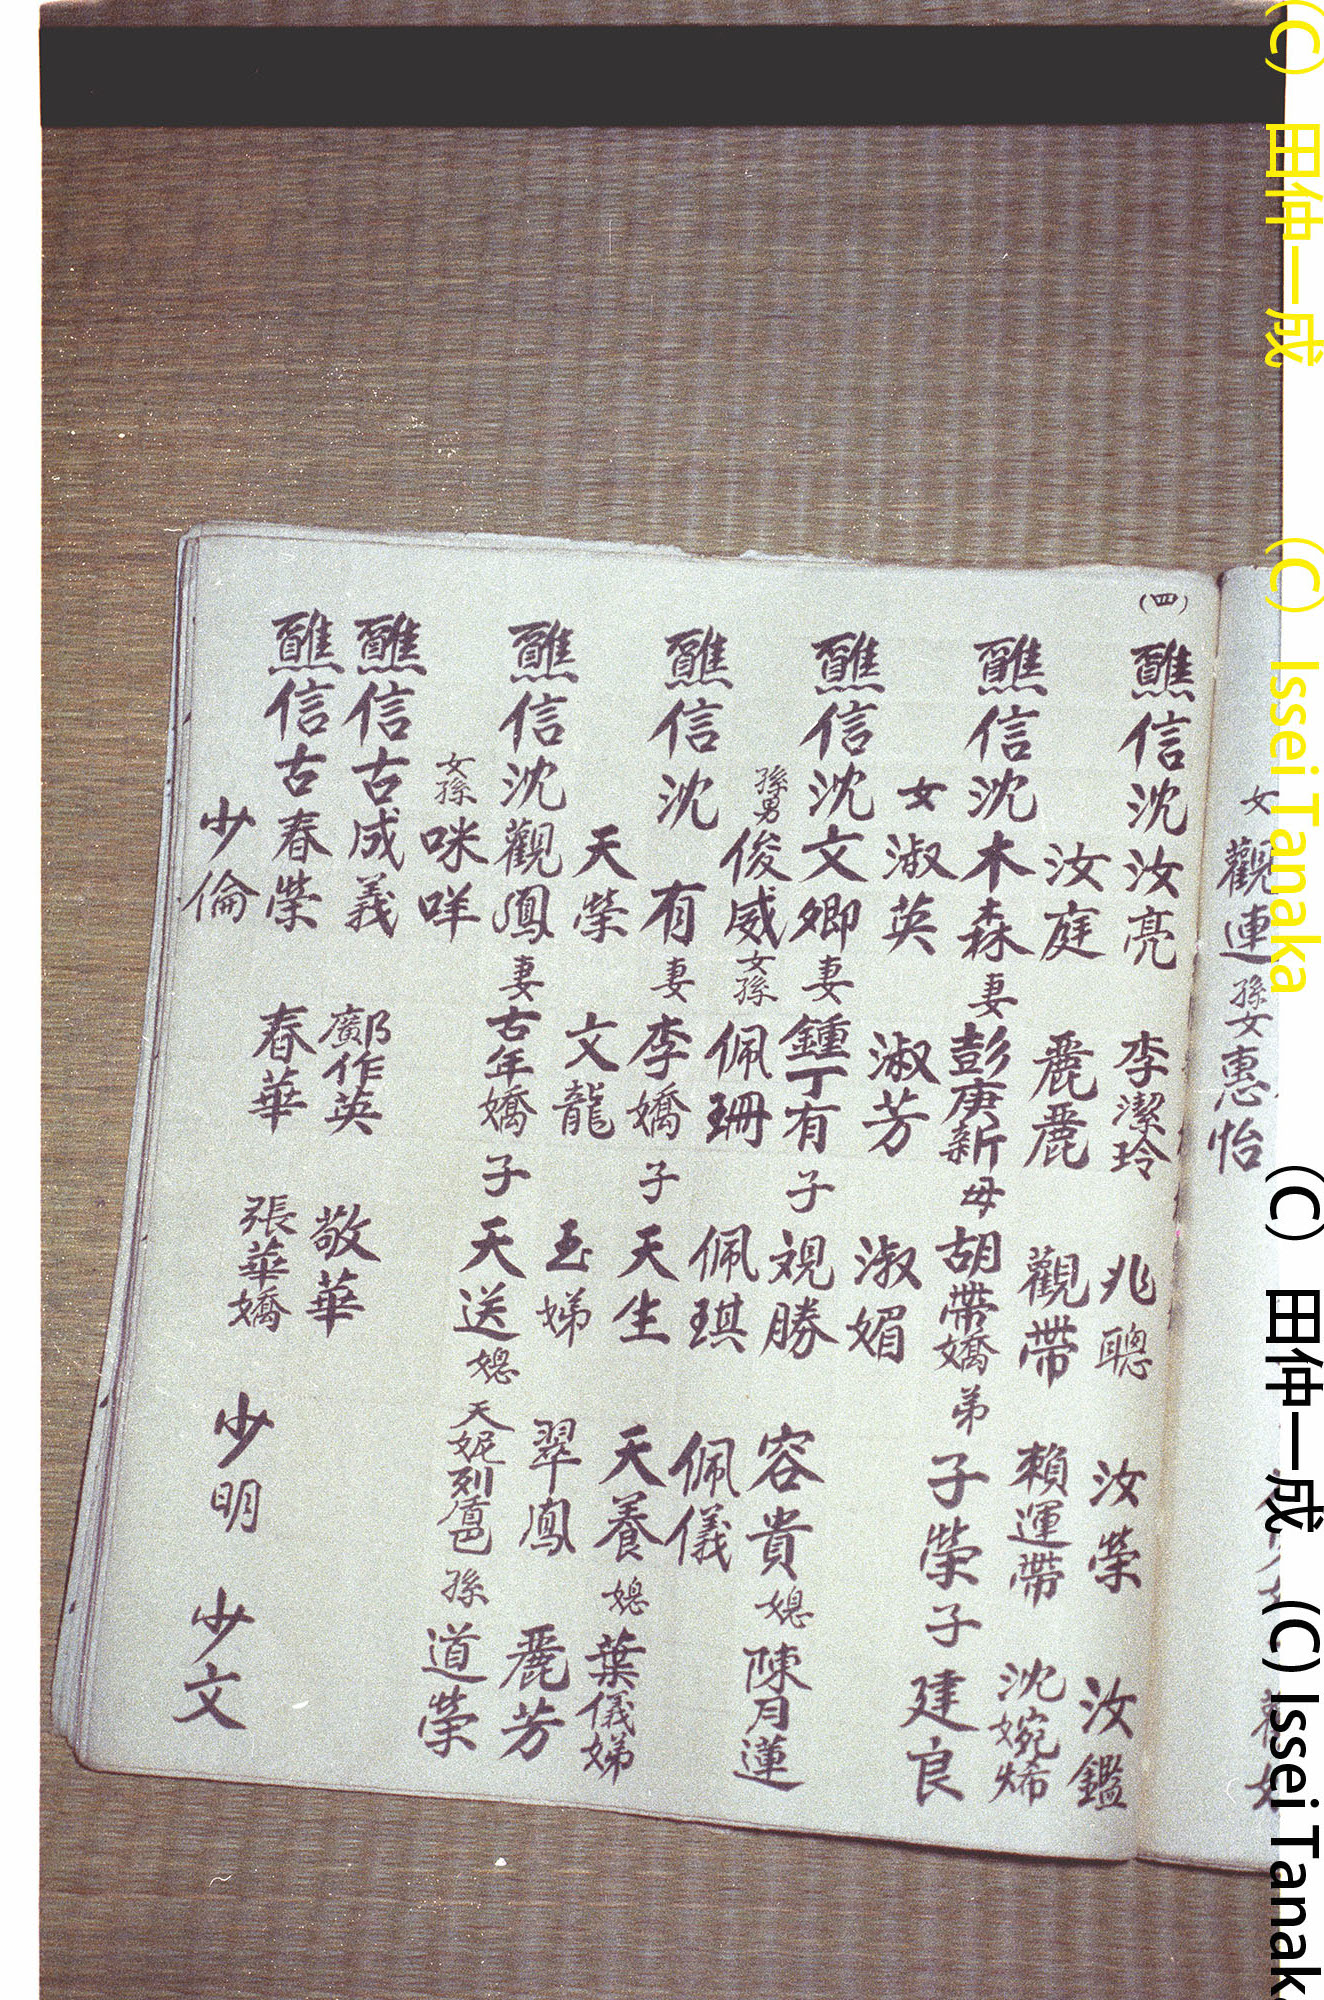 女觀連孫女惠怡
(四)
醮信沈汝亮 李潔玲 兆聰 汝榮 汝鑑
汝庭 麗麗 觀帶 賴運帶 沈婉烯
醮信沈木森妻彭庚新母胡帶嬌弟子榮子建良
女淑英 淑芳 淑媚
醮信沈文卿妻鍾丁有子 勝 容貴媳陳月蓮
孫男俊威女孫佩珊 佩琪 佩儀
醮信沈有妻李嬌子天生 天養媳葉儀娣
天榮 文龍 玉娣 翠鳳 麗芳
醮信沈觀鳳妻古年嬌子天送媳天妮列 孫道榮
女孫咪咩
醮信古成義 鄺作英 敬華
醮信古春榮 春華 張華嬌 少明 少文
少倫
(C) 田仲一成 (C) Issei Tanaka
(C) 田仲一成 (C) Issei Tanak